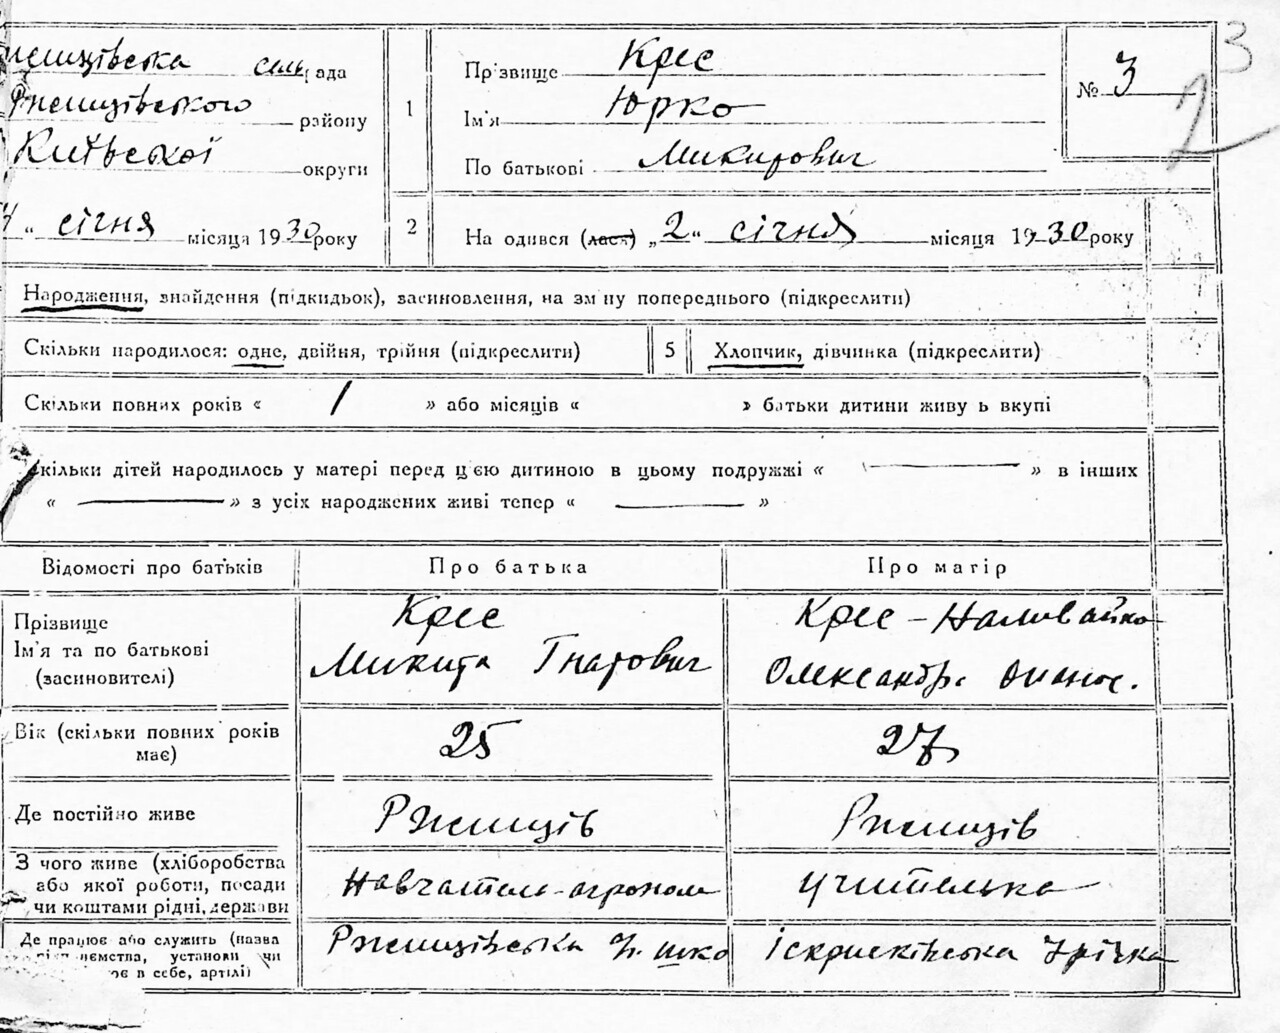 Ржищівська сель ада
Ржищівського району
Київської округи
1
Пр'звище Крес
Ім'я Юрко
По батькові Микитович
№ 3
3
2
4 " січня місяця 1930 року
2
На одився (лася) „2" січня місяця 1930 року
Народження, знайдення (підкидьок), засиновлення, на зм ну попереднього (підкреслити)
Скільки народилося: одне, двійня, трійня (підкреслити)
5
Хлопчик, дівчинка (підкреслити)
Скільки повних років « 1 » або місяців « » батьки дитини живу ь вкупі
кільки дітей народилось у матері перед ц єю дитиною в цьому подружжі « — » в інших
« — » з усіх народжених живі тепер « — »
Відомості про батьків
Про батька
Про матір
Прізвище
Ім'я та по батькові
(засиновителі)
Крес
Микита Гнатович
Крес - Наливайко
Олександра
Вік (скільки повних років
має)
25
27
Де постійно живе
Ржищів
Ржищів
З чого живе (хліборобства
або якої роботи, посади
чи коштами рідні, держави
Навчатель-агроном
Учителька
Де працює або служить (назва
ємства, установи чи
ює в себе, артілі)
Ржищівська шко